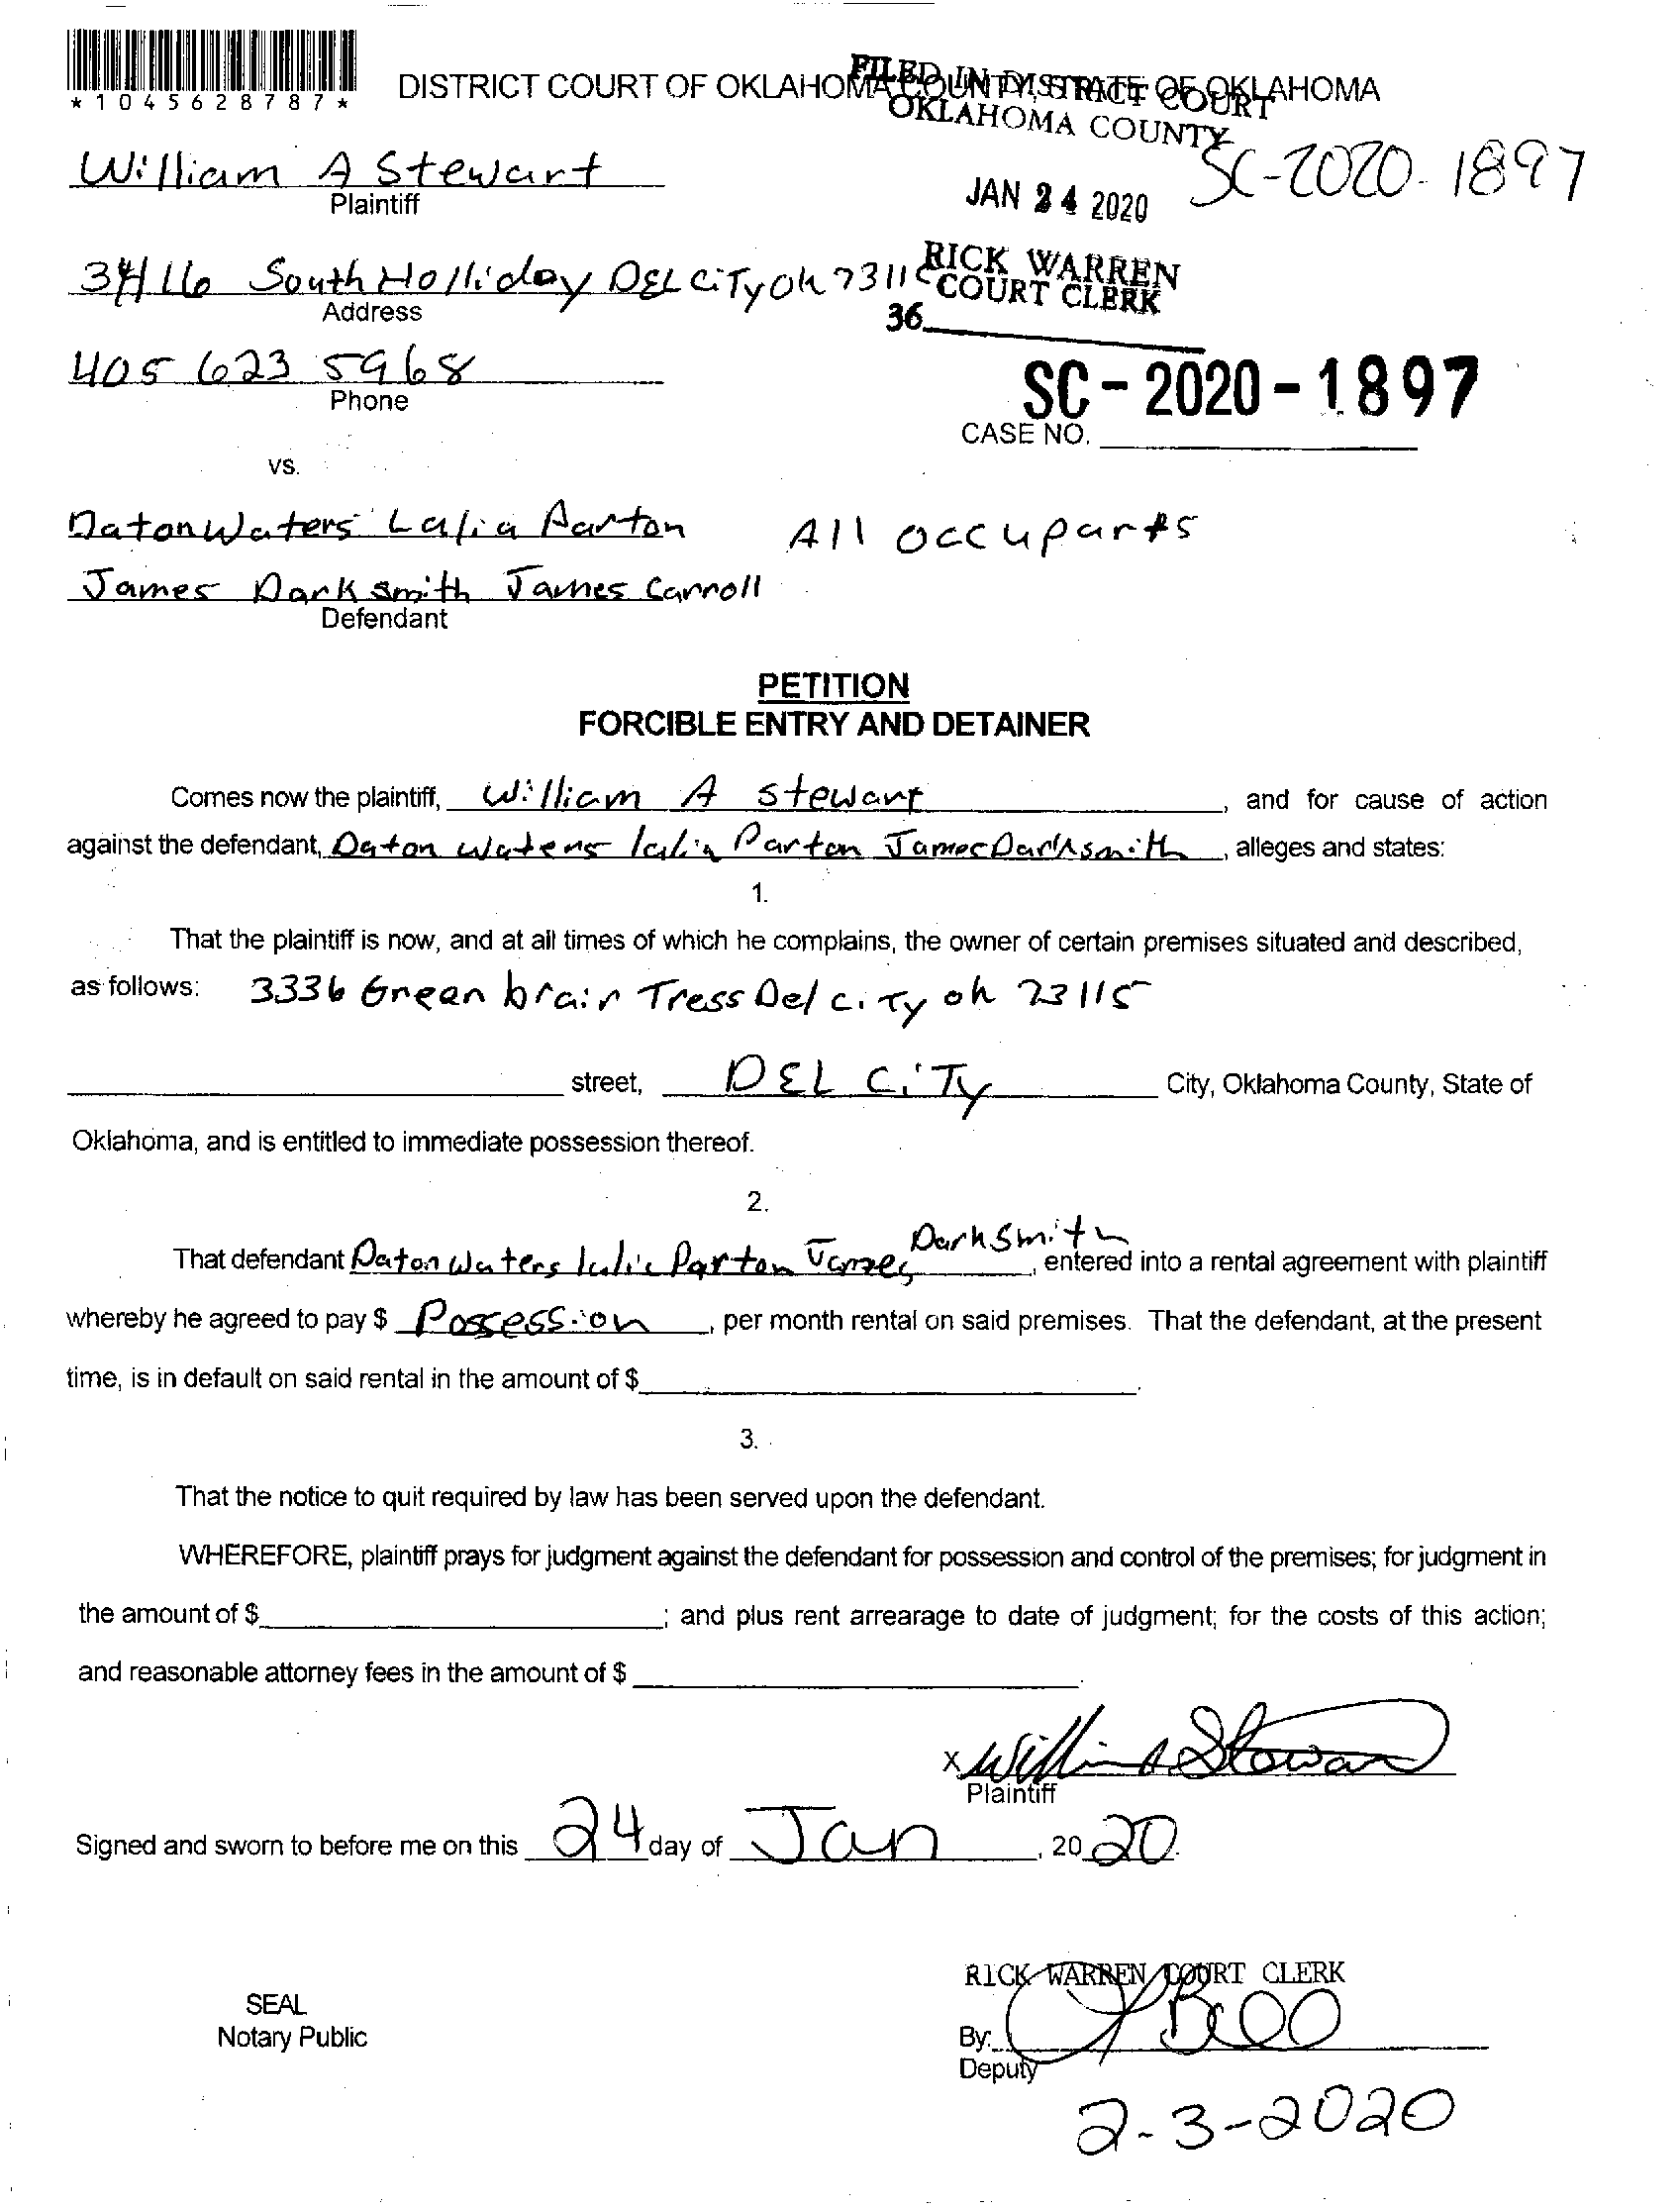 *1045628787*
DISTRICT COURT OF OKLAHOMA COUNTY, STATE OF OKLAHOMA
FILED IN DISTRICT COURT
OKLAHOMA COUNTY
SC-2020-1897
William A Stewart
Plaintiff
JAN 24 2020
South Holliday DEL CiTy Ok 7311
Address
RICK WARREN
COURT CLERK
36
405 623 5968
Phone
SC-2020-1897
CASE NO.
vs.
Daton Waters Lalia Parton
All occuparts
James Dark smith James Carroll
Defendant
PETITION
FORCIBLE ENTRY AND DETAINER
Comes now the plaintiff, William A Stewart, and for cause of action
against the defendant, Daton Waters lalia Parton James Darksmith, alleges and states:
1.
That the plaintiff is now, and at all times of which he complains, the owner of certain premises situated and described,
as follows: 3336 Green brair Tress Del ciTy ok 73115
street, DEL CiTy City, Oklahoma County, State of
Oklahoma, and is entitled to immediate possession thereof.
2.
That defendant Daton Waters lalia Parton James DarkSmith, entered into a rental agreement with plaintiff
whereby he agreed to pay $ Possession, per month rental on said premises. That the defendant, at the present
time, is in default on said rental in the amount of $.
3.
That the notice to quit required by law has been served upon the defendant.
WHEREFORE, plaintiff prays for judgment against the defendant for possession and control of the premises; for judgment in
the amount of $; and plus rent arrearage to date of judgment; for the costs of this action;
and reasonable attorney fees in the amount of $.
x William A Stewart
Plaintiff
Signed and sworn to before me on this 24 day of Jan, 2020.
RICK WARREN COURT CLERK
SEAL
Notary Public
By:
Deputy
2-3-2020